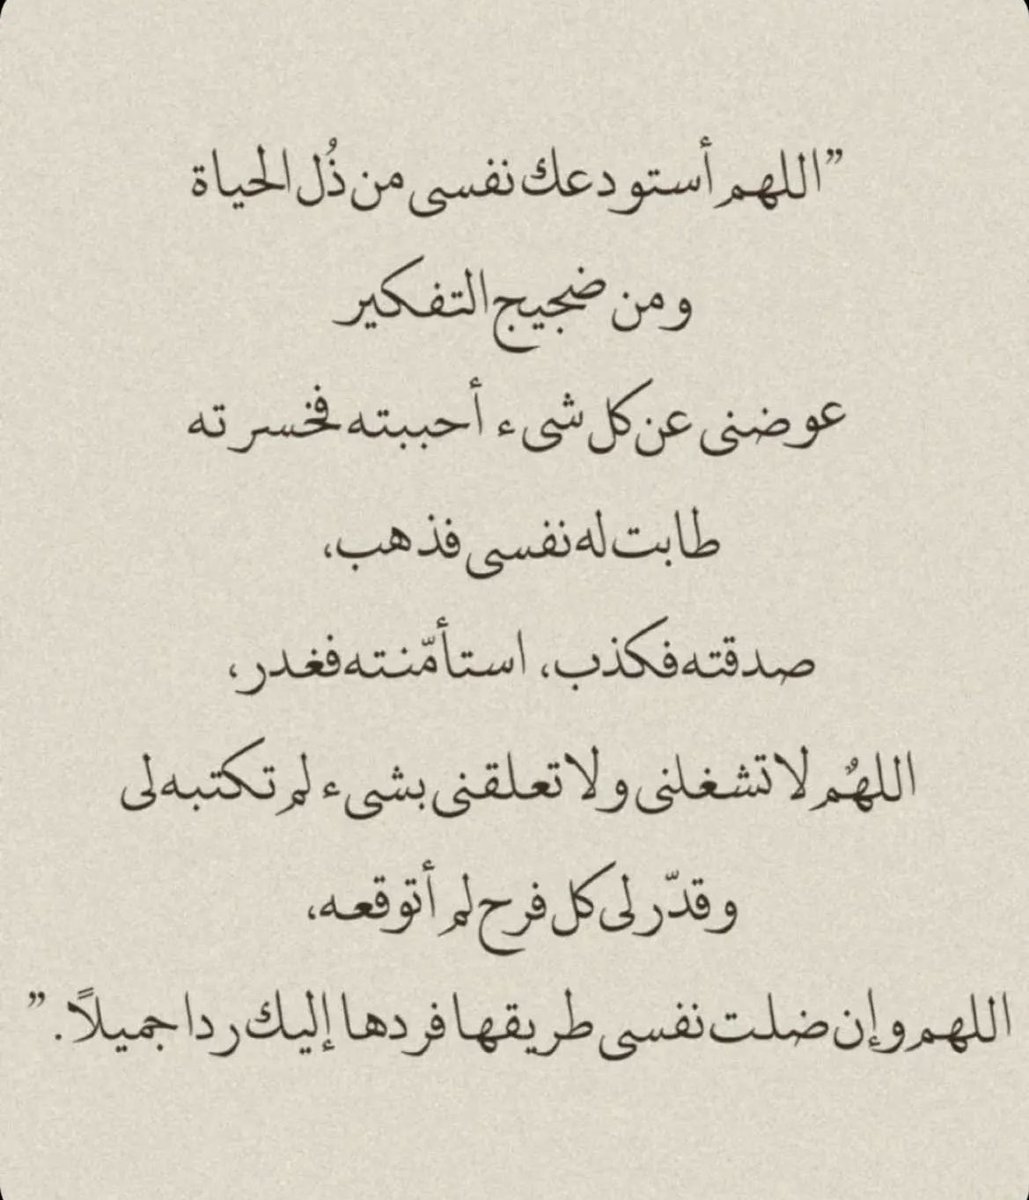 ”اللهم أستودعك نفسى من ذُل الحياة
ومن ضجيج التفكير
عوضنى عن كل شىء أحببته فخسرته
طابت له نفسى فذهب،
صدقته فكذب، استأمّنته فغدر،
اللهٌم لا تشغلنى ولا تعلقنى بشىء لم تكتبه لى
وقدّر لى كل فرح لم أتوقعه،
اللهم وإن ضلت نفسى طريقها فردها إليك ردا جميلاً.”